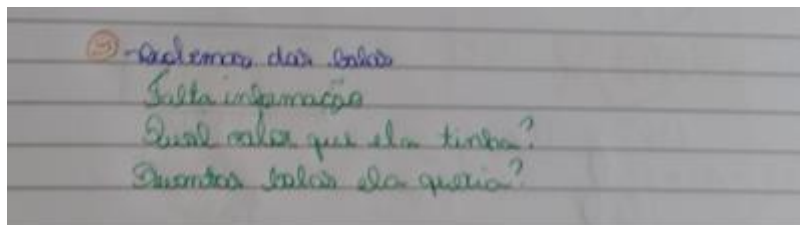 3 - Problemas das balas
Falta informação
Qual valor que ela tinha?
Quantas balas ela queria?